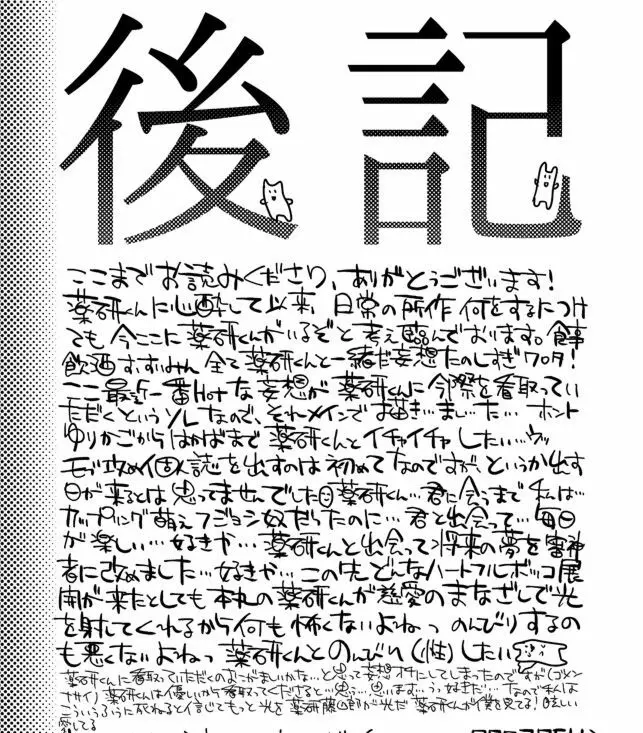 後記
ここまでお読みくださり、ありがとうございます!
薬研くんに心酔して以来、日常の所作 何をするにつけ
ても 今ここに薬研くんがいるぞと考え臨んでおります。食事
飲酒 すいすいみん 全て薬研くんと一緒だ妄想たのしすぎワロタ!
ここ最近一番Hotな妄想が 薬研くんに今際を看取ってい
ただくというソレなので、それメインでお描き…ました… ホント
ゆりかごからはかばまで 薬研くんとイチャイチャしたい…ウッ
モブ攻め個人誌を出すのは初めてなのですが、というか出す
日が来るとは思ってませんでした 薬研くん…君に会うまで私は…
カップリング萌えフジョシ奴だったのに…君と出会って…毎日
が楽しい…好きや…薬研くんと出会って将来の夢を審神
者に改めました…好きや…この先どんなハートフルボッコ展
開が来たとしても本丸の薬研くんが慈愛のまなざしで光
を射してくれるから何も怖くないよねっ のんびりするの
も悪くないよねっ 薬研くんとのんびり(性)したい
薬研くんに看取っていただくのおこがましいかな…と思って妄想オチにしてしまったのですが(ゴメン
ナサイ) 薬研くんは優しいから看取ってくださると…思…思います…うっ好きだ… なので私は
こういうふうに死ねると信じてもっと光を 薬研藤四郎が光だ 薬研くんが僕を見てる! 眩しい
愛してる